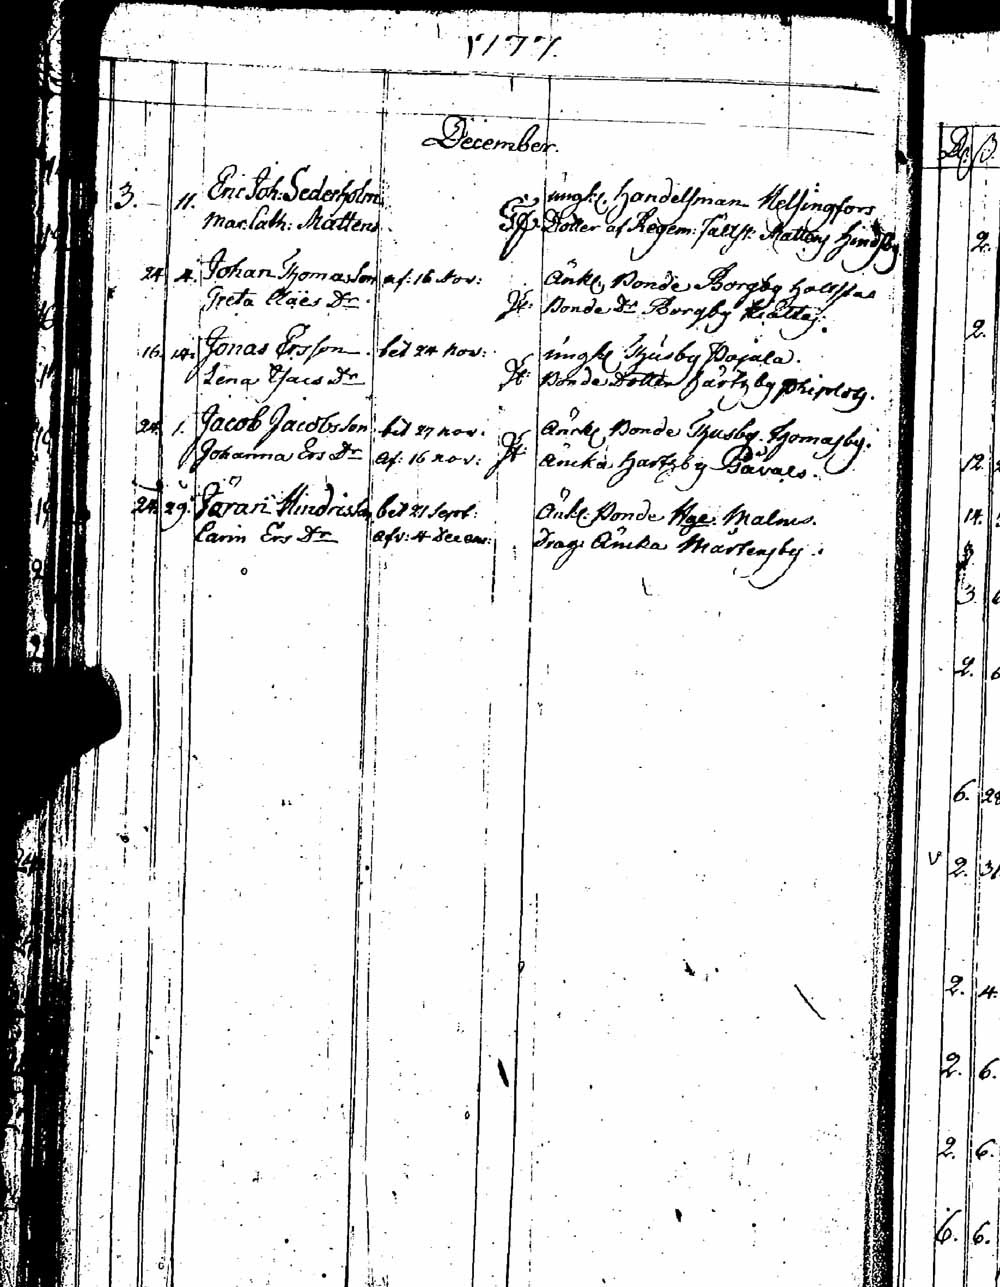 1777.
December.
3. 11. Eric Joh: Sederholm ungk. Handelsman Helsingfors
Mar. Cath: Mattens Dotter af Regem: Fältsk: Mattens Hindsby
24. 4. Johan Thomasson af: 16 Nov: Änkl. Bonde Borgby
Greta Claës Dr. Bonde Dr Borgby
16. 14. Jonas Ersson bet 24 Nov: ungk Thusby Pojala.
Lena Isacs Dr Bonde Dotter
24. 1. Jacob Jacobsson bet 27 nov. Änckl Bonde Thusby. Thomasby.
Johanna Ers Dr af: 16 nov: änka Hartzby Påvals.
24. 29. Jöran Hindrisson bet 21 Sept: Änkl. Bonde Malms.
Carin Ers Dr afv: 4 Drag: Änka Mårtensby.
2.
2.
12.
14.
3.
2. 6
6. 28
2. 31
2. 4.
2. 6.
2. 6.
6. 6.